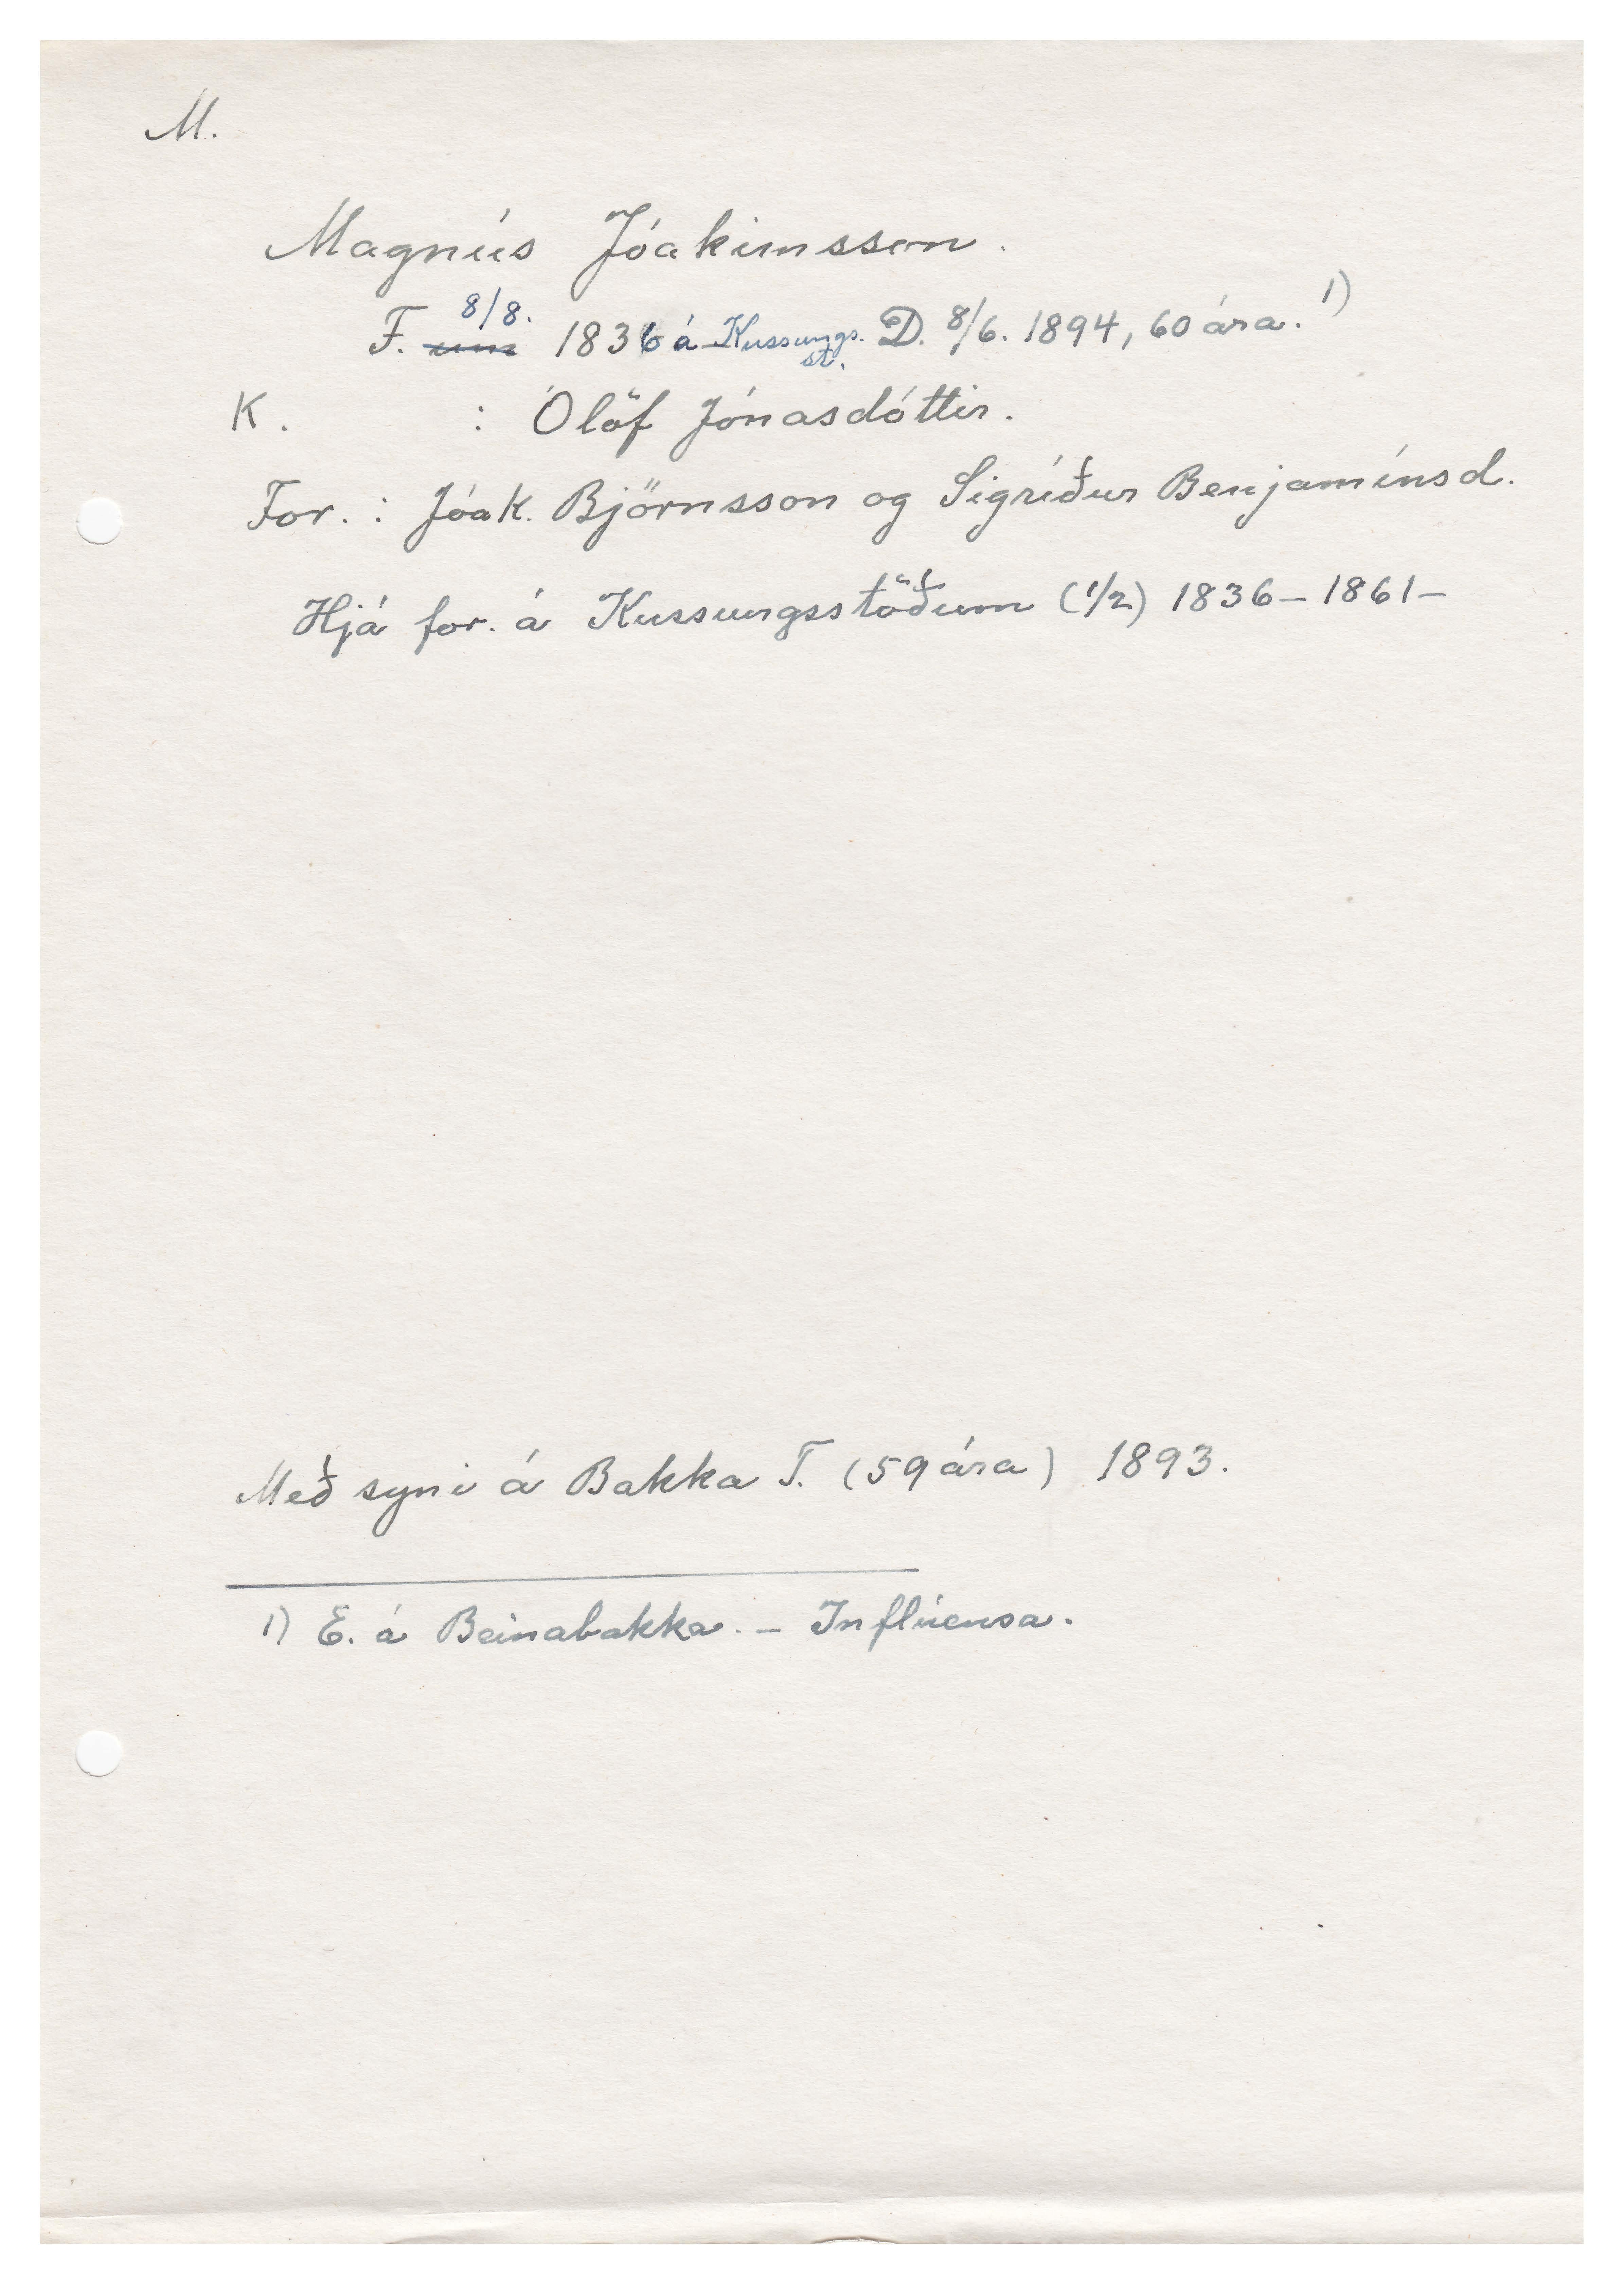 M.
Magnús Jóakimsson.
8/8.
F. um 1836 á Kussungs. D. 8/6. 1894, 60 ára. 1)
st.
K. : Ólöf Jónasdóttir.
For. : Jóak. Björnsson og Sigríður Benjamínsd.
Hjá for. á Kussungsstöðum (1/2) 1836 – 1861 –
Með syni á Bakka T. (59 ára) 1893.
1) E. á Beinabakka. – Inflúensa.